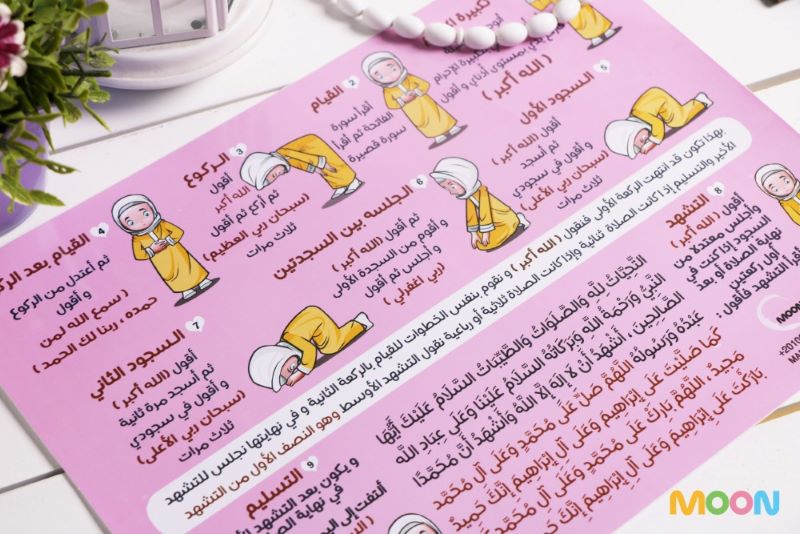 تكبيرة
الإحرام
( الله أكبر )
2 القيام
أقرأ سورة
الفاتحة ثم أقرأ
سورة قصيرة
3 الركوع
أقول
( الله أكبر )
ثم أركع ثم أقول
(سبحان ربي العظيم)
ثلاث مرات
4 القيام بعد
ثم أعتدل من الركوع
و أقول
( سمع الله لمن
حمده ، ربنا لك الحمد )
5 السجود الأول
أقول (الله أكبر)
ثم أسجد
و أقول في سجودي
(سبحان ربي الأعلى)
ثلاث مرات
6 الجلسه بين السجدتين
ثم أقول (الله أكبر)
و أقوم من السجدة الأولى
و أجلس ثم أقول
(ربي اغفرلي)
7 السجود الثاني
أقول (الله أكبر)
ثم أسجد مرة ثانية
و أقول في سجودي
(سبحان ربي الأعلى)
ثلاث مرات
بهذا تكون قد انتهت الركعة الأولى فنقول ( الله أكبر ) و نقوم بنفس الخطوات للقيام بالركعة الثانية و في نهايتها نجلس للتشهد
الأخير والتسليم إذا كانت الصلاة ثنائية وإذا كانت الصلاة ثلاثية أو رباعية نقول التشهد الأوسط وهو النصف الأول من التشهد
8 التشهد
أقول (الله أكبر)
وأجلس معتدلة من
السجود إذا كنت في
نهاية الصلاة أو بعد
أول ركعتين
أقرأ التشهد فأقول :
التَّحِيَّاتُ لِلَّهِ وَالصَّلَوَاتُ وَالطَّيِّبَاتُ السَّلَامُ عَلَيْكَ أَيُّهَا
النَّبِيُّ وَرَحْمَةُ اللَّهِ وَبَرَكَاتُهُ السَّلَامُ عَلَيْنَا وَعَلَى عِبَادِ اللَّهِ
الصَّالِحِينَ ، أَشْهَدُ أَنْ لَا إِلَهَ إِلَّا اللَّهُ وَأَشْهَدُ أَنَّ مُحَمَّدًا
عَبْدُهُ وَرَسُولُهُ اللَّهُمَّ صَلِّ عَلَى مُحَمَّدٍ وَعَلَى آلِ مُحَمَّدٍ
كَمَا صَلَّيْتَ عَلَى إِبْرَاهِيمَ وَعَلَى آلِ إِبْرَاهِيمَ إِنَّكَ حَمِيدٌ
مَجِيدٌ ، اللَّهُمَّ بَارِكْ عَلَى مُحَمَّدٍ وَعَلَى آلِ مُحَمَّدٍ كَمَا
بَارَكْتَ عَلَى إِبْرَاهِيمَ وَعَلَى آلِ إِبْرَاهِيمَ إِنَّكَ
9 التسليم
و يكون بعد التشهد
في نهاية الصلاة
ألتفت إلى
MOON
+2010
MOON